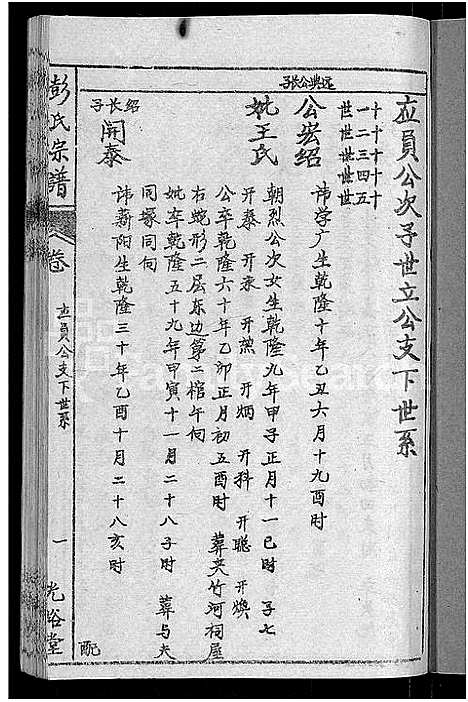 应員公次子世立公支下世系
十一世
十二世
十三世
十四世
十五世
远典公长子
公宏绍
讳学广生乾隆十年乙丑六月十九酉时
妣王氏
朝烈公次女生乾隆九年甲子正月十一巳时 子七
开泰 开永 开 开烟 开科 开聪 开焕
公卒乾隆六十年乙卯正月初五酉时 葬夹竹河祠屋
右蛇形二层东边第二棺午向
妣卒乾隆五十九年甲寅十一月二十八子时 葬与夫
同塚同向
绍长子
开泰
讳新阳生乾隆三十年乙酉十月二十八亥时
配
彭氏宗譜
卷
应員公支下世系
一
光裕堂